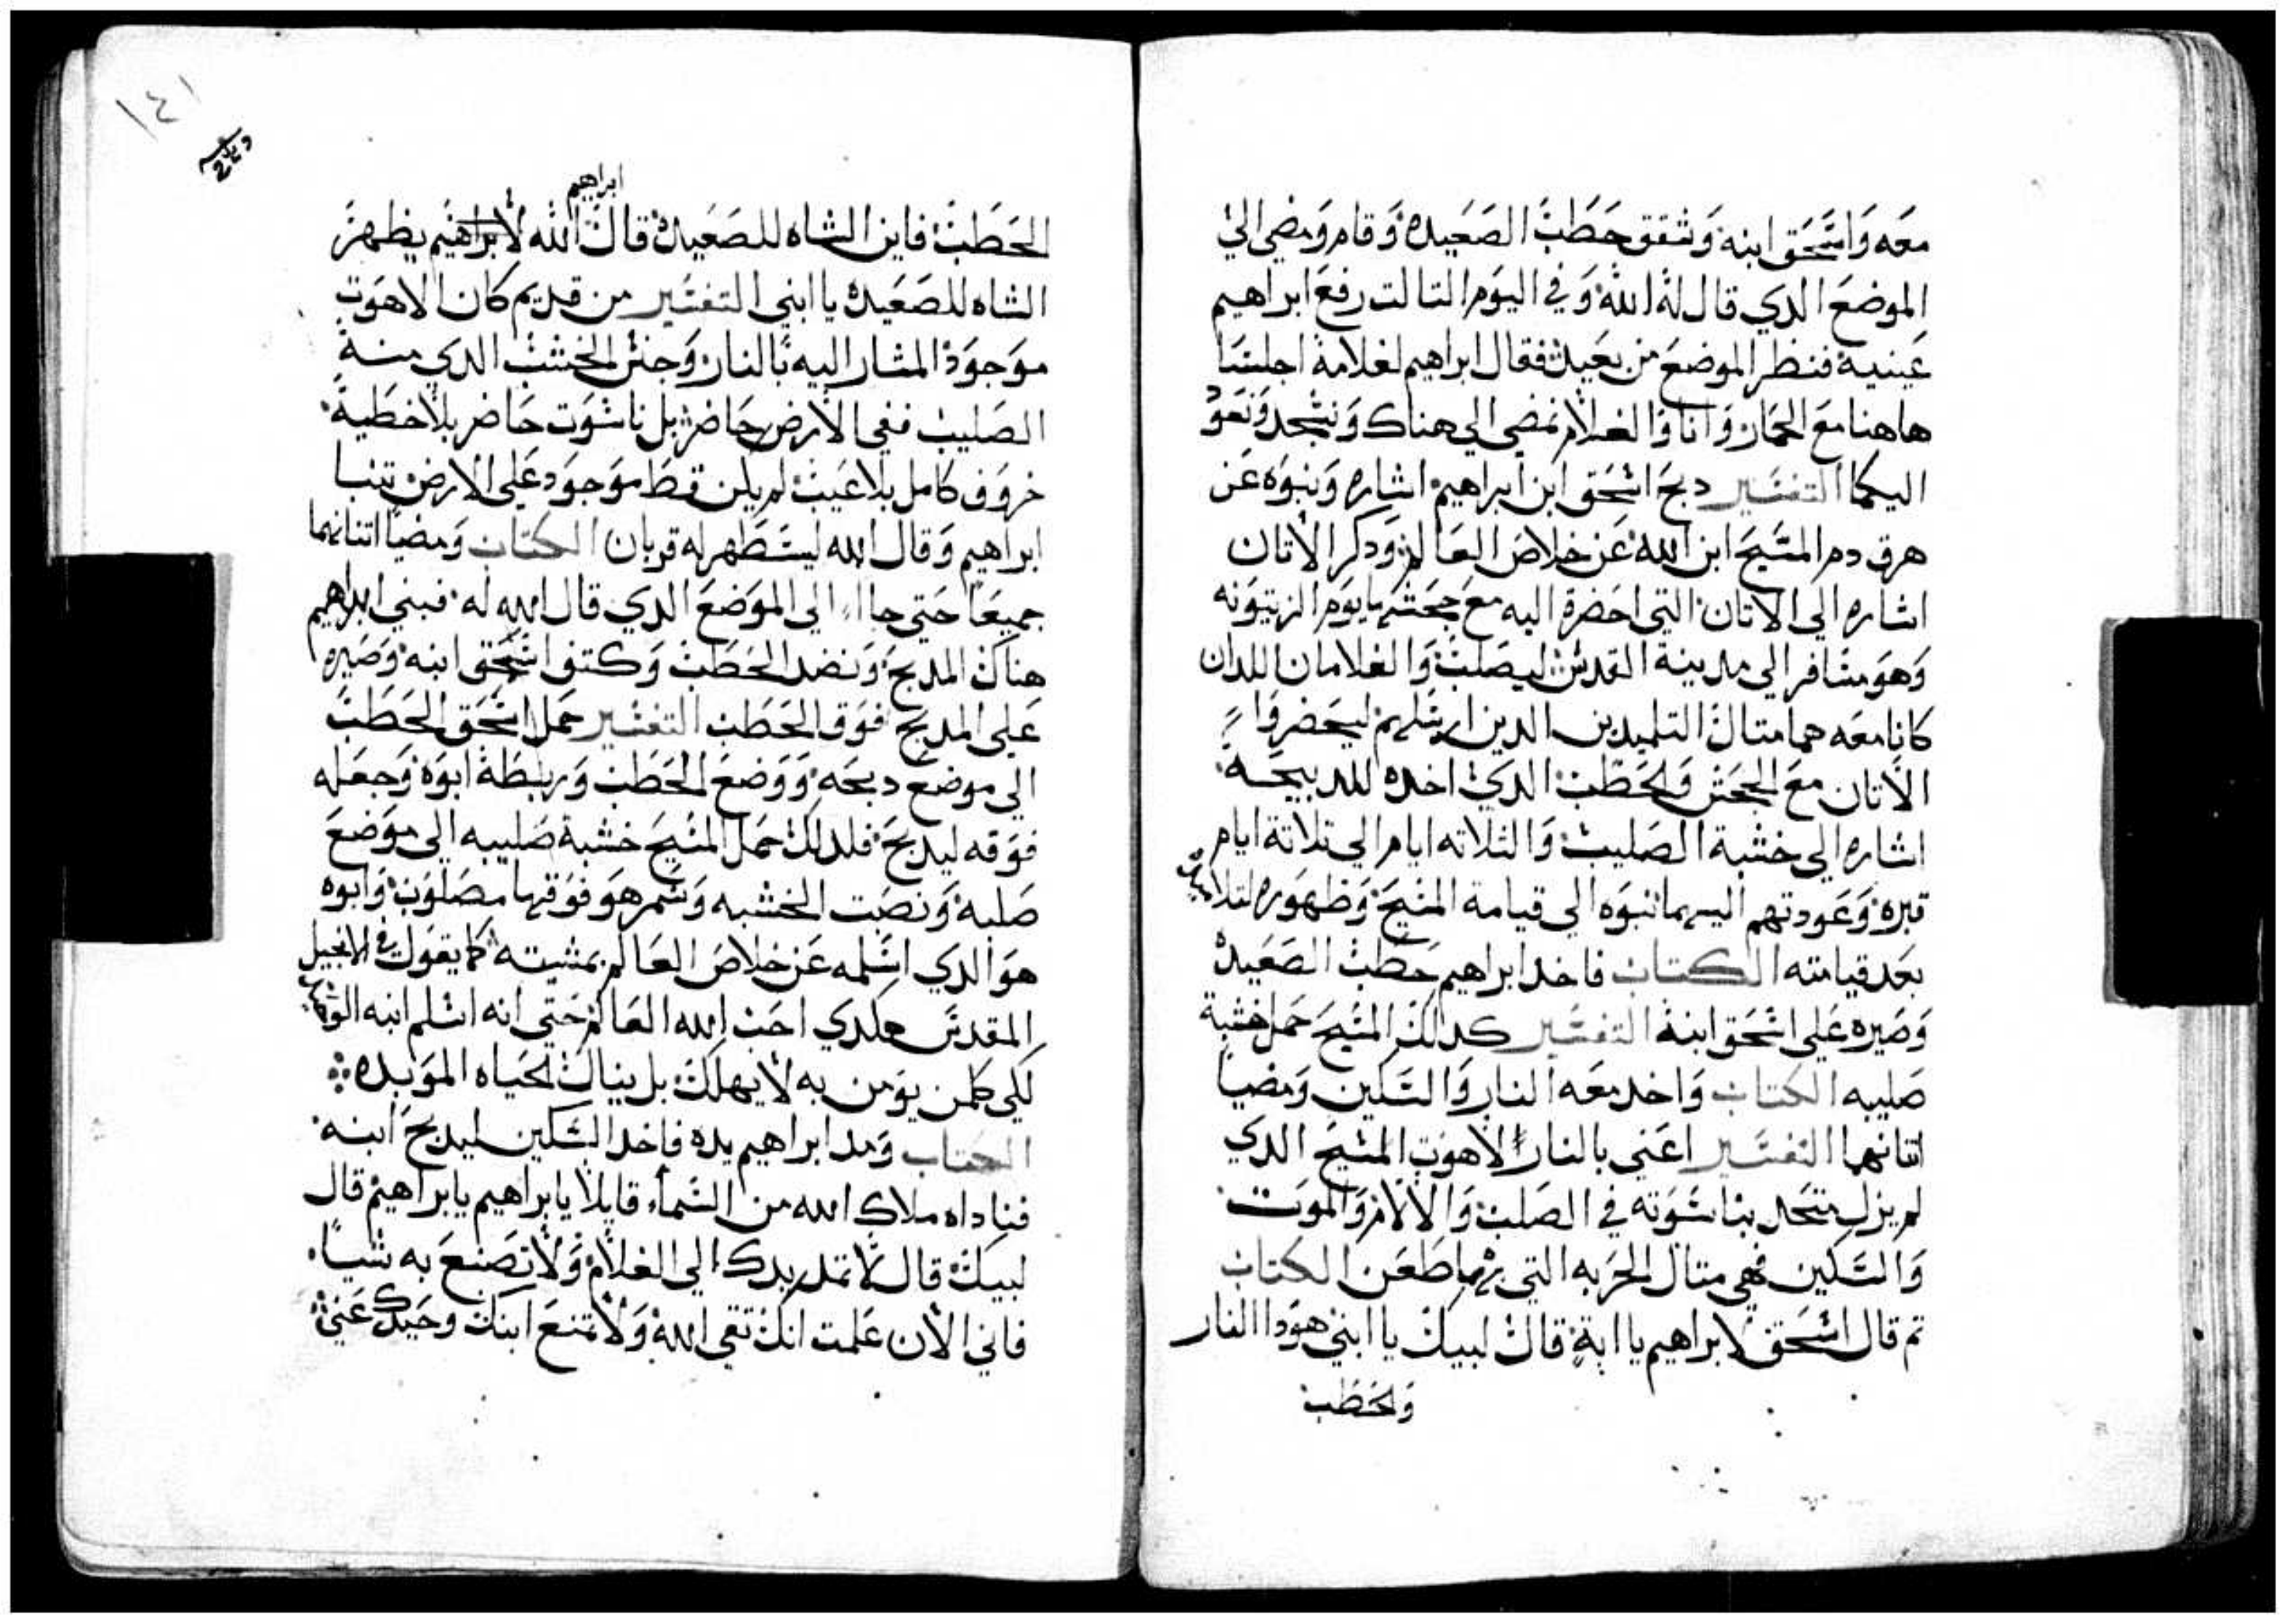 معه واسحق ابنه وشقق حطب الصعيده وقام ومضي الي
الموضع الدي قال له الله وفي اليوم التالت رفع ابراهيم
عينيه فنظر الموضع من بعيد فقال ابراهيم لغلامه اجلسا
هاهنا مع الحمار وانا والغلام نمضي الي هناك ونسجد ونعود
اليكما التفسير دبح اسحق ابن ابراهيم اشاره ونبوه عن
هرق دم المسيح ابن الله عن خلاص العالم ودكر الاتان
اشاره الي الاتان التي احضرة اليه مع جحشها يوم الزيتونه
وهو مسافر الي مدينة القدس ليصلب والغلامان اللدان
كانا معه هما متال التلميدين الدين ارسلهم ليحضروا
الاتان مع الجحش والحطب الدي اخده للدبيحه
اشاره الي خشبة الصليب والتلاته ايام الي تلاتة ايام
قبره وعودتهم اليهما نبوه الي قيامة المسيح وظهوره لتلاميده
بعد قيامته الكتاب فاخد ابراهيم حطب الصعيده
وصيره علي اسحق ابنه التفسير كدلك المسيح حمل خشبة
صليبه الكتاب واخد معه النار والسكين ومضيا
اتنانهما التفسير اعني بالنار الاهوت المسيح الدي
لم يزل متحد بناسوته في الصلب والالام والموت
والسكين فهي متال الحربه التي بها طعن الكتاب
تم قال اسحق لابراهيم يا ابة قال لبيك يا ابني هودا النار
والحطب
١٤١
ابراهيم
الحطب فاين الشاه للصعيده قال الله لابراهيم يظهر
الشاه للصعيده يا ابني التفسير من قديم كان الاهوت
موجود المشار اليه بالنار وجنس الخشب الدي منه
الصليب ففي الارض حاضر بل ناسوت حاضر بلا خطية
خروف كامل بلا عيب لم يكن قط موجود علي الارض تنبا
ابراهيم وقال الله ليستظهر له قربان الكتاب ومضيا اتنانهما
جميعا حتي جاا الي الموضع الدي قال الله له فبني ابراهيم
هناك المدبح ونضد الحطب وكتف اسحق ابنه وصيره
علي المدبح فوق الحطب التفسير حمل اسحق الحطب
الي موضع دبحه ووضع الحطب وربطة ابوه وجعله
فوقه ليدبح فلدلك حمل المسيح خشبة صليبه الي موضع
صلبه ونصبت الخشبه وسمر هو فوقها مصلوب وابوه
هو الدي اسلمه عن خلاص العالم بمشيته كما يقول في الانجيل
المقدس هكدي احب الله العالم حتي انه اسلم ابنه الوحيد
لكي كلمن يومن به لا يهلك بل ينال الحياه الموبده
الكتاب ومد ابراهيم يده فاخد السكين ليدبح ابنه
فناداه ملاك الله من السماء قايلا يابراهيم يابراهيم قال
لبيك قال لا تمد يدك الي الغلام ولا تصنع به شيا
فاني الان علمت انك تتقي الله ولا تمنع ابنك وحيدك عني